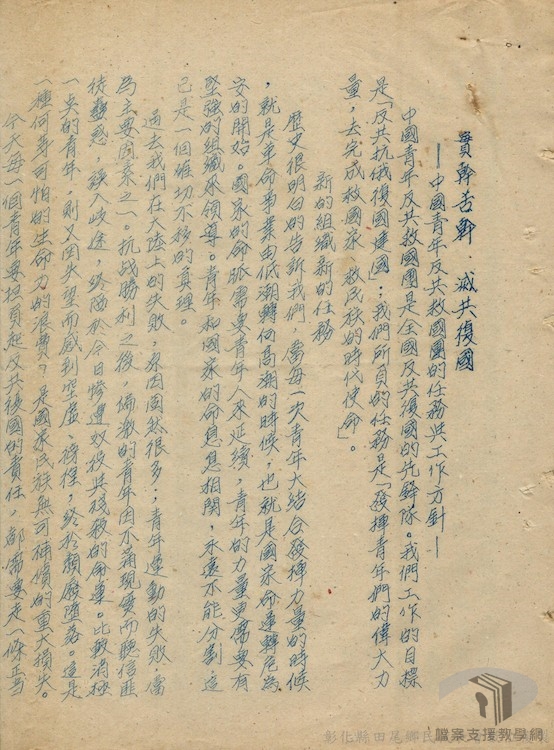 實幹苦幹．滅共復國
—中國青年反共救國團的任務與工作方針—
中國青年反共救國團是全國反共復國的先鋒隊。我們工作的目標
是「反共抗俄復國建國」；我們所負的任務是「發揮青年們的偉大力
量，去完成救國家　救民族的時代使命」。
新的組織新的任務
歷史很明白的告訴我們，當每一次青年大結合發揮力量的時候
，就是革命事業由低潮轉向高潮的時候，也就是國家命運轉危為
安的開始。國家的命脈需要青年人來延續，青年的力量更需要有
堅強的組織來領導。青年和國家的命息息相關，永遠不能分割這
已是一個確切不移的真理。
過去我們在大陸上的失敗，原因固然很多；青年運動的失敗當
為主要因素之一。抗战勝利之後，偏激的青年因不滿現實而聽信匪
徒蠱惑，誤入歧途，終陷於今日慘遭奴役與殘殺的命運。比較消極
一点的青年，則又因失望而感到空虛、徬徨，終於頹廢墮落。這是
一種何等可怕的生命力的浪費？是國家民族無可補償的重大損失。
今天每一個青年要担負起反共復國的責任，都需要走一條正
彰化縣田尾鄉民
檔案支援教學網